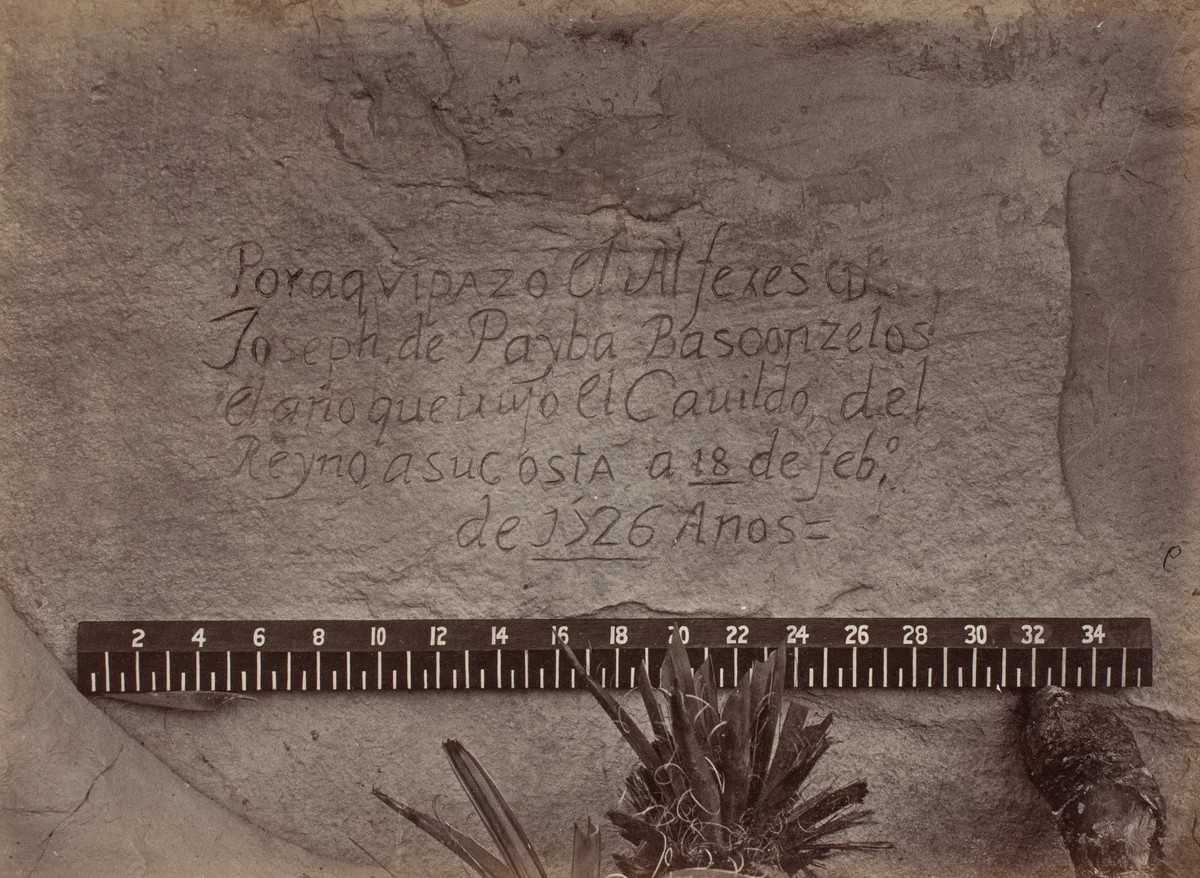 Poraqvi pazo el Alferes Dn
Joseph, de Payba Basoonzelos
el año que tuujo el Cauildo, del
Reyno a su costa a 18 de feb.º
de 1726 Años=
2 4 6 8 10 12 14 16 18 20 22 24 26 28 30 32 34